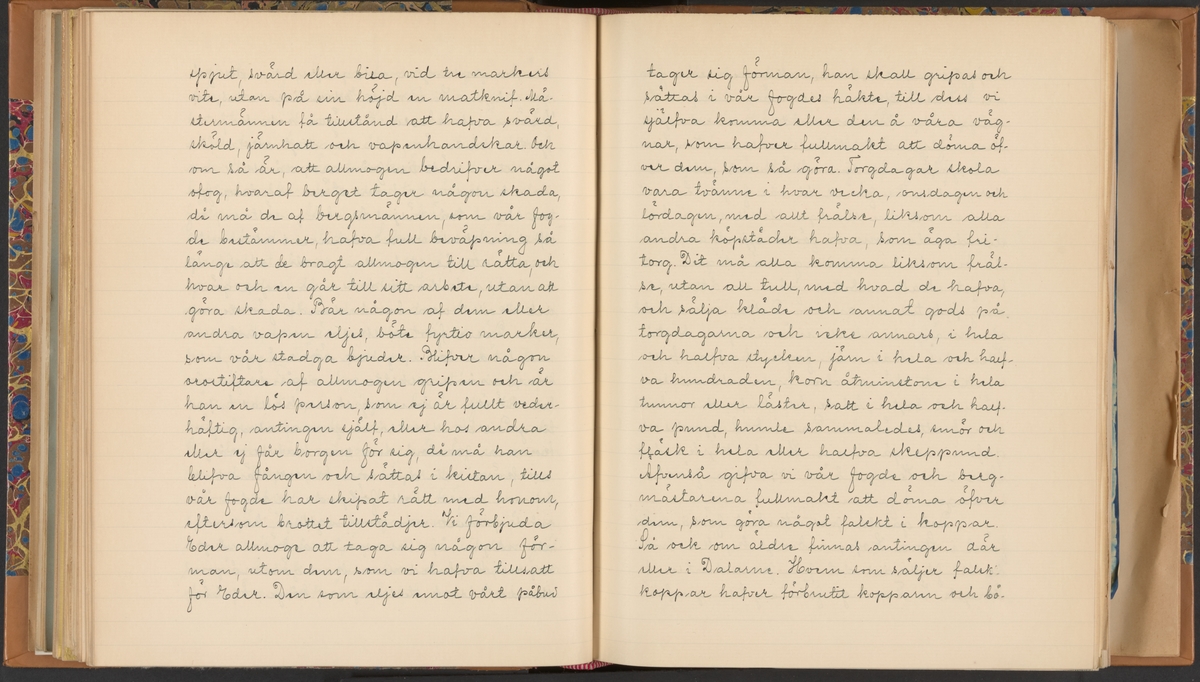 spjut, svärd eller bila, vid tre markers
vite, utan på sin höjd en matknif. Mä-
stermännen få tillstånd att hafva svärd,
sköld, järnhatt och vapenhandskar. Och
om så är, att allmogen bedrifver något
ofog, hvaraf berget tager någon skada,
då må de af bergsmännen, som vår fog-
de bestämmer, hafva full beväpning så
länge att de bragt allmogen till rätta, och
hvar och en går till sitt arbete, utan att
göra skada. Bär någon af dem eller
andra vapen eljes, böte fyrtio marker,
som vår stadga bjuder. Blifver någon
orostiftare af allmogen gripen och är
han en lös person, som ej är fullt veder-
häftig, antingen själf, eller hos andra
eller ej får borgen för sig, då må han
blifva fången och sättas i kistan, tills
vår fogde har skipat rätt med honom,
eftersom brottet tillstädjer. Vi förbjuda
Eder allmoge att taga sig någon för-
man, utom dem, som vi hafva tillsatt
för Eder. Den som eljes emot vårt påbud
tager sig förman, han skall gripas och
sättas i vår fogdes häkte, till dess vi
själfva komma eller den å våra väg-
nar, som hafver fullmakt att döma öf-
ver dem, som så göra. Torgdagar skola
vara tvänne i hvar vecka, onsdagen och
lördagen, med allt frälse, liksom alla
andra köpstäder hafva, som äga fri-
torg. Dit må alla komma liksom fräl-
se, utan all tull, med hvad de hafva,
och sälja kläde och annat gods på
torgdagarna och icke annars, i hela
och halfva stycken, järn i hela och half-
va hundraden, korn åtminstone i hela
tunnor eller läster, salt i hela och half-
va pund, humle sammaledes, smör och
fläsk i hela eller halfva skeppund.
Äfvenså gifva vi vår fogde och berg-
mästarena fullmakt att döma öfver
dem, som göra något falskt i koppar.
Så ock om äldre finnas antingen där
eller i Dalarne. Hvem som säljer falsk
koppar hafver förbrutit kopparn och bö-